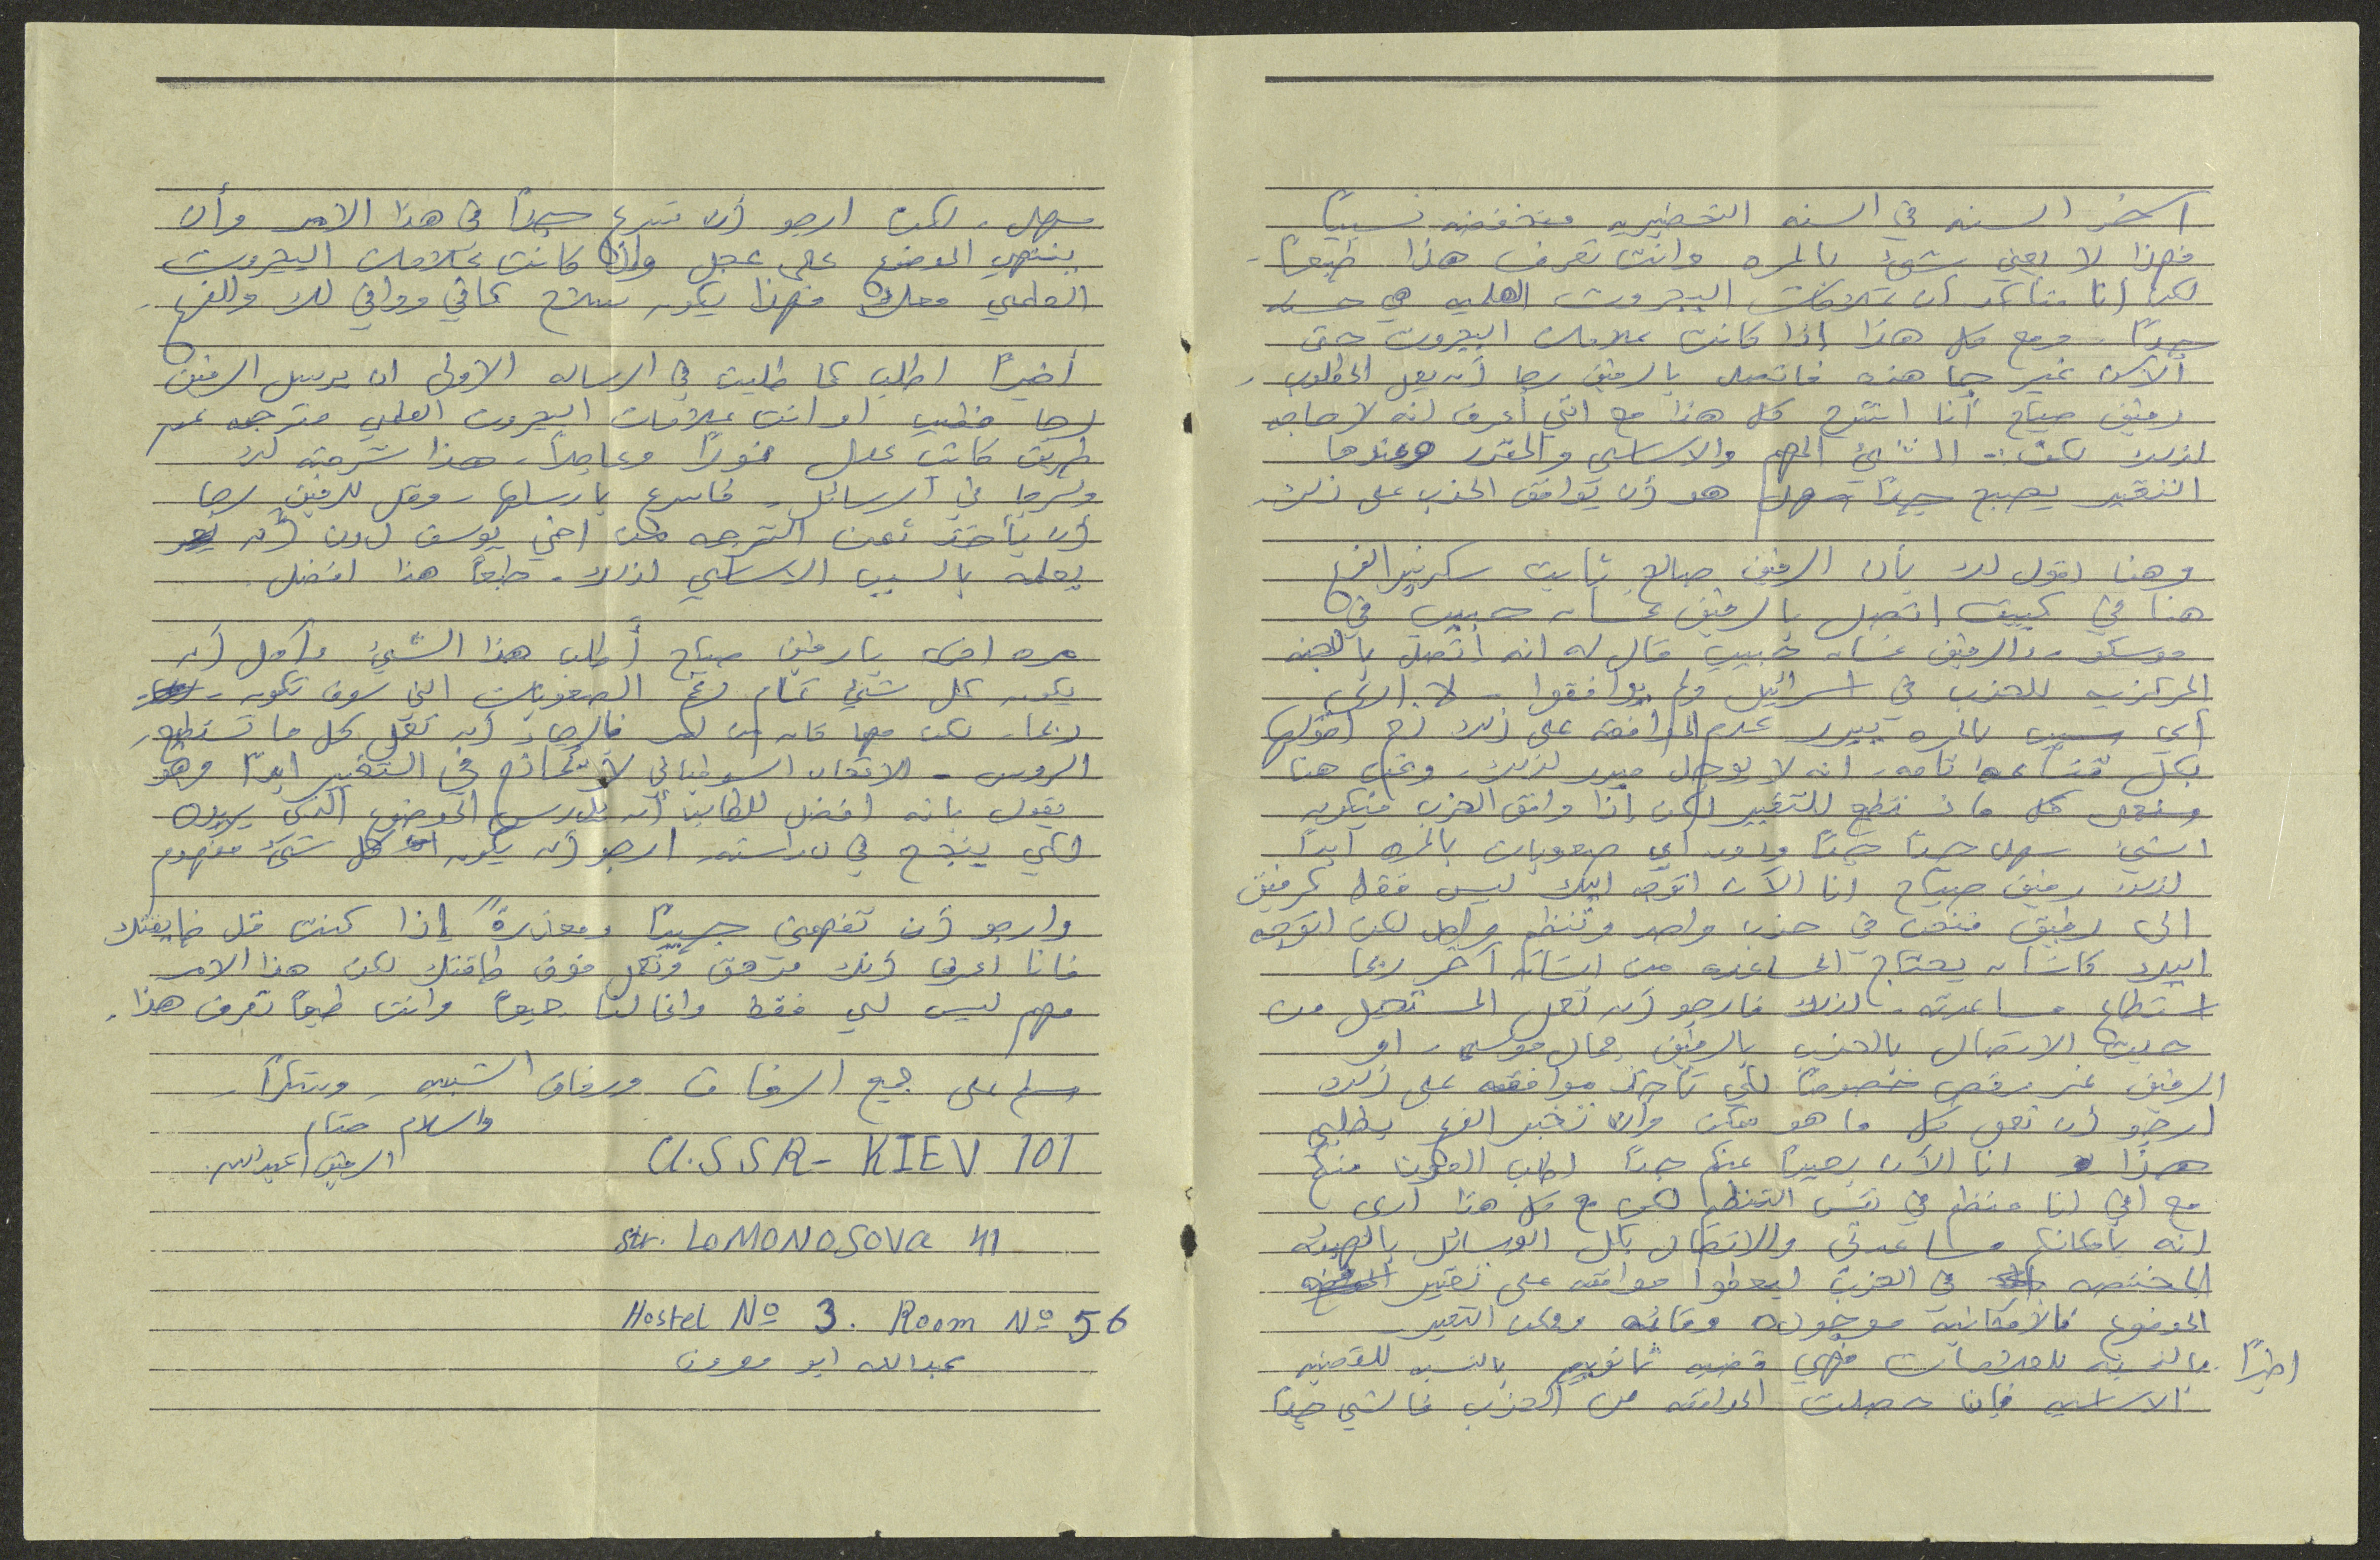 آخر السنه في السنه التحضيريه منخفضه نسبيًا
فهذا لا يعني شيئ بالمره وانت تعرف هذا طبعًا -
لكن أنا متأكد أن علامات البجروت العلميه هي حسنه
جدًا - ومع كل هذا إذا كانت علامات البجروت حتى
الآن غير جاهزه فاتصل بالرفيق رجا أن يعمل المطلوب -
رفيق صباح أنا اشرح كل هذا مع انني أعرف انه لا حاجه
لذلك لكن :- الشيئ المهم والاساسي والمقرر وعندها
التغير يصبح جدًا سهل هو أن يوافق الحزب على ذلك -
وهنا اقول لك بأن الرفيق صالح ثابت سكرتير الفرع
هنا في كييف اتصل بالرفيق غسان حبيب في
موسكو - والرفيق غسان حبيب قال له انه اتصل باللجنه
المركزيه للحزب في اسرائيل ولم يوافقوا - لا ارى
أي سبب بالمره يبرر عدم الموافقه على ذلك اقولها
بكل قناعه تامه - انه لا يوجد مبرر لذلك - ونحن هنا
وسنعمل كل ما نستطيع للتغيير لكن إذا وافق الحزب فيكون
الشيئ سهل جدًا جدًا وبدون أي صعوبات بالمره ابدًا
لذلك رفيق صباح انا الآن اتوجه اليك ليس فقط كرفيق
الى رفيق فنحن في حزب واحد وتنظيم واحد لكن اتوجه
اليك كانسان يحتاج المساعده من انسان آخر ربما
استطاع مساعدته - لذلك فارجو أن تعمل المستحيل من
حيث الاتصال بالحزب بالرفيق جمال موسى - او
الرفيق نمر مرقص خصوصًا لكي تأخذ موافقه على ذلك
ارجو أن تعمل كل ما هو ممكن وأن تخبر الفرع بطلبي
هذا انا الآن بعيدًا عنكم جدًا اطلب العون منكم
مع اني انا منظم في نفس التنظيم لكن مع كل هذا أرى
انه بامكانكم مساعدتي والاتصال بكل الوسائل بالهيئه
المختصه في الحزب ليعطوا موافقه على تغيير
الموضوع فالامكانيه موجوده وممكن التغيير -
اخيرًا بالنسبه للعلامات فهي قضيه ثانويه بالنسبه للقضيه
الاساسيه فإن حصلت الموافقه من الحزب فالشيئ جدًا
سهل - لكن ارجو أن تسرع جدًا في هذا الامر وأن
ينتهي الموضوع على عجل وإذا كانت علامات البجروت
العلمي معك فهذا يكون سلاح كافي ووافي لك وللفرع -
أخيرًا اطلب كما طلبت في الرساله الاولى ان يرسل الرفيق
رجا خطيب او انت علامات البجروت العلمي مترجمه عن
طريق كاتب عدل فورًا وعاجلاً - هذا شرحته لك
ولرجا في الرسائل - فاسرع بارسالها - وقل للرفيق رجا
أن يأخذ ثمن الترجمه من اخي يوسف دون أن
يعلمه بالسبب الاساسي لذلك - طبعًا هذا افضل
مره اخرى يا رفيق صباح أطلب هذا الشيئ وآمل أن
يكون كل شيئ تمام رغم الصعوبات التي سوف تكون -
ربما - لكن مهما كان من أمر فالرجاء أن تعمل كل ما تستطيع -
الروس - الاتحاد السوفياتي لا يمانع في التغيير ابدًا وهو
يقول بانه افضل للطالب أن يدرس الموضوع الذي يريده
لكي ينجح في دراسته ارجو أن يكون كل شيئ مفهوم
وارجو أن تفهمني جيدًا ومعذرةً إذا كنت قد ضايقتك
فانا اعرف أنك مرهق وتعمل فوق طاقتك لكن هذا الامر
مهم ليس لي فقط وانما لنا جميعًا وانت طبعًا تعرف هذا -
سلم على جميع الرفاق ورفاق الشبيبه وشكرًا -
والسلام ختام
الرفيق عبدالله
U.S.S.R - KIEV 101
Str. LOMONOSOVA 41
Hostel No 3. Room No 56
عبدالله ابو معروف